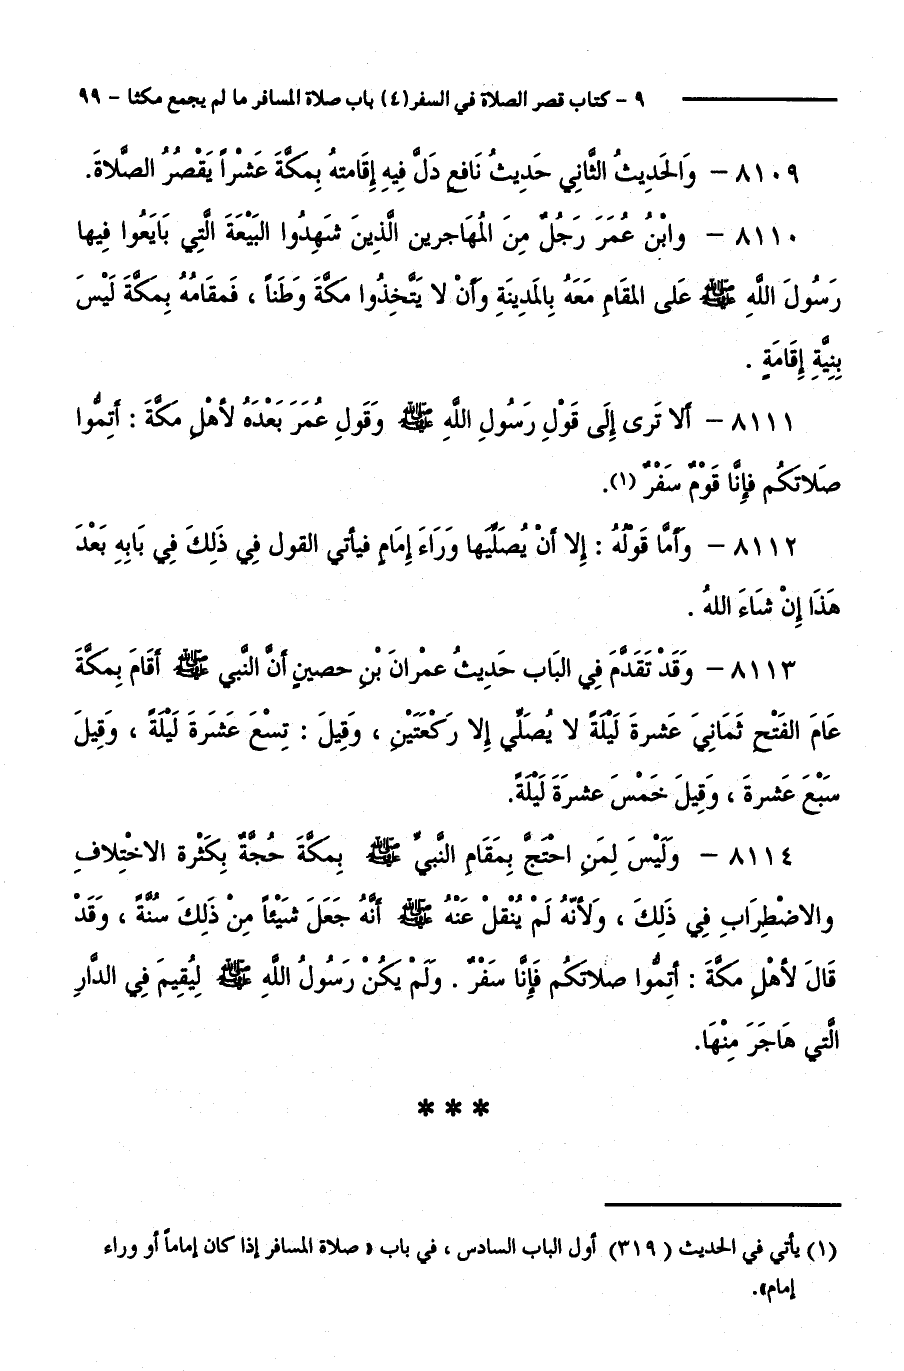 ٩ - كتاب قصر الصلاة في السفر (٤) باب صلاة المسافر ما لم يجمع مكثا - ٩٩
٨١٠٩ - وَالحَدِيثُ الثَّانِي حَدِيثُ نَافِعٍ دَلَّ فِيهِ إِقَامتهُ بِمَكَّةَ عَشْراً يَقْصُرُ الصَّلَاةَ.
٨١١٠ - وابْنُ عُمَرَ رَجُلٌ مِنَ المُهَاجرين الَّذِينَ شَهِدُوا البَيْعَةَ الَّتِي بَايَعُوا فِيها
رَسُولَ اللَّهِ ﷺ عَلى المقَامِ مَعَهُ بِالمَدِينَةِ وَأَنْ لا يَتَّخِذُوا مَكَّةَ وَطَناً ، فَمقَامُهُ بِمكَّةَ لَيْسَ
بِنِيَّةِ إِقَامَةٍ .
٨١١١ - أَلا تَرى إِلَى قَوْلِ رَسُولِ اللَّهِ ﷺ وَقَولِ عُمَرَ بَعْدَهُ لأهْلِ مَكَّةَ : أَتِمُّوا
صَلَاتَكُم فإِنَّا قَوْمٌ سَفْرٌ (١).
٨١١٢ - وَأَمَّا قَوْلُهُ : إِلا أَنْ يُصَلِّيَها وَرَاءَ إِمَامٍ فيأتي القول فِي ذَلِكَ فِي بَابِهِ بَعْدَ
هَذَا إِنْ شَاءَ اللهُ .
٨١١٣ - وَقَدْ تَقَدَّمَ فِي البَاب حَدِيثُ عمْرانَ بْنِ حصينٍ أَنَّ النَّبي ﷺ أقَامَ بِمكَّةَ
عَامَ الفَتْحِ ثَمَانِيَ عَشرةَ لَيْلَةً لا يُصَلِّي إِلا رَكْعَتَيْنِ ، وَقِيلَ : تِسْعَ عَشَرَةَ لَيْلَةً ، وَقِيلَ
سَبْعَ عَشرةَ ، وَقِيلَ خَمْسَ عشرَةَ لَيْلَةً.
٨١١٤ - وَلَيْسَ لِمَنِ احْتَجَّ بِمَقَامِ النَّبيِّ ﷺ بِمَكَّةَ حُجَّةٌ بِكَثْرة الاخْتِلافِ
والاضْطِرَابِ فِي ذَلِكَ ، وَلأنَّهُ لَمْ يُنْقلْ عَنْهُ ﷺ أَنَّهُ جَعَلَ شَيْئاً مِنْ ذَلِكَ سُنَّةً ، وَقَدْ
قَالَ لأهْلِ مكَّةَ : أتِمُّوا صلاتكُم فَإِنَّا سَفْرٌ . وَلَمْ يكُنْ رَسُولُ اللَّهِ ﷺ لِيُقِيمَ فِي الدَّارِ
الَّتي هَاجَرَ مِنْهَا.
* * *
(١) يأتي في الحديث (٣١٩) أول الباب السادس ، في باب « صلاة المسافر إذا كان إماماً أو وراء
إمام».